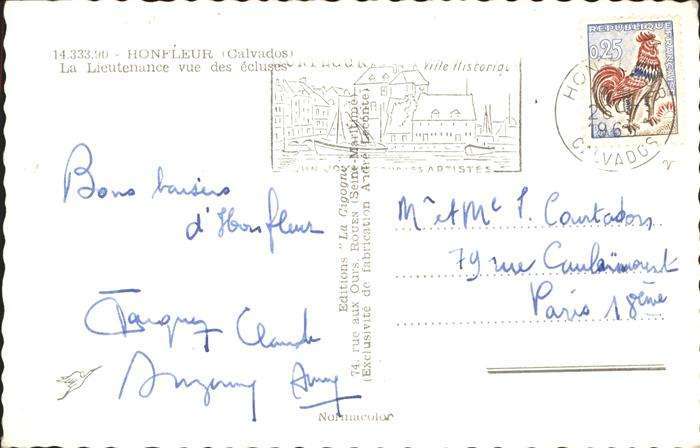 14.333.90 - HONFLEUR (Calvados)
La Lieutenance vue des écluses
HONFLEUR Ville Historique
ARTISTES
REPUBLIQUE FRANÇAISE
0,25
CALVADOS
Bons baisers
d'Honfleur
Claude
Editions "La Cigogne"
74, rue aux Ours, ROUEN (Seine-Maritime)
(Exclusivité de fabrication André Leconte)
Mr et Me P. Courtadon
79 rue Caulaincourt
Paris 18ème
Normacolor